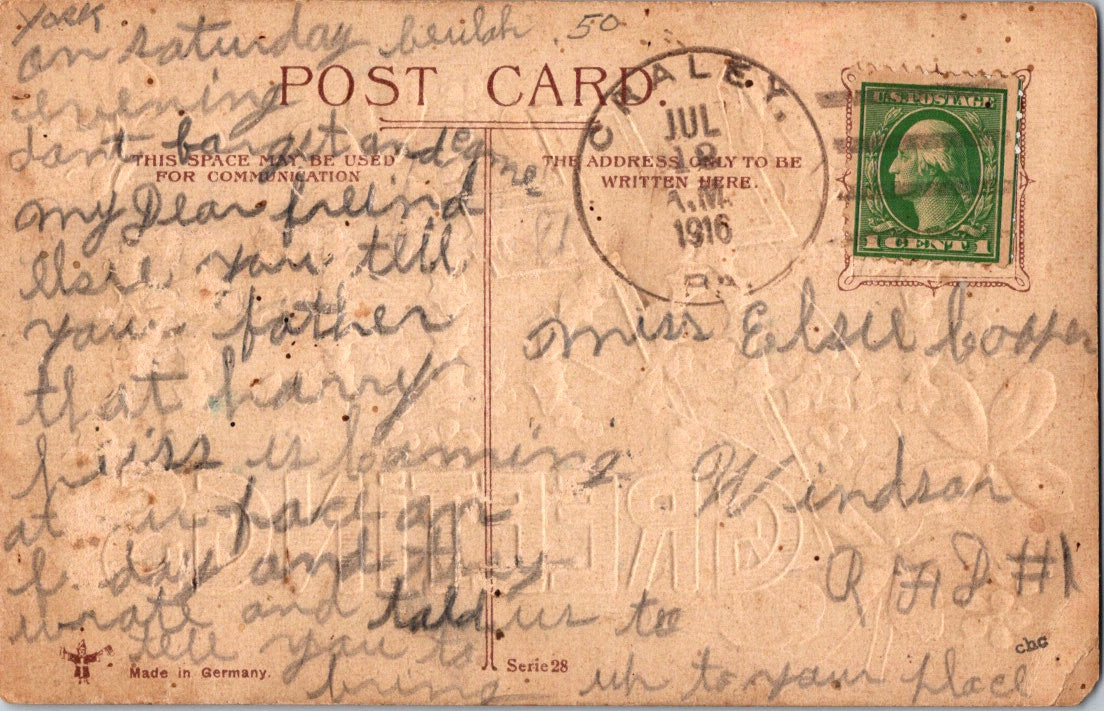 York
on saturday beulah 50
evening
POST CARD.
dont forget and come
THIS SPACE MAY BE USED
FOR COMMUNICATION
THE ADDRESS ONLY TO BE
WRITTEN HERE.
CRALEY,
JUL
A.M.
1916
PA.
U.S. POSTAGE
1 CENT 1
my Dear freind
Elsie you tell
your father
that harry
is coming
at our place on
day and they
wrote and told us to
tell you to
bring uh to your place
Miss Elsie Cooper
Windsor
R F D #1
GREETINGS
Made in Germany.
Serie 28
cbc